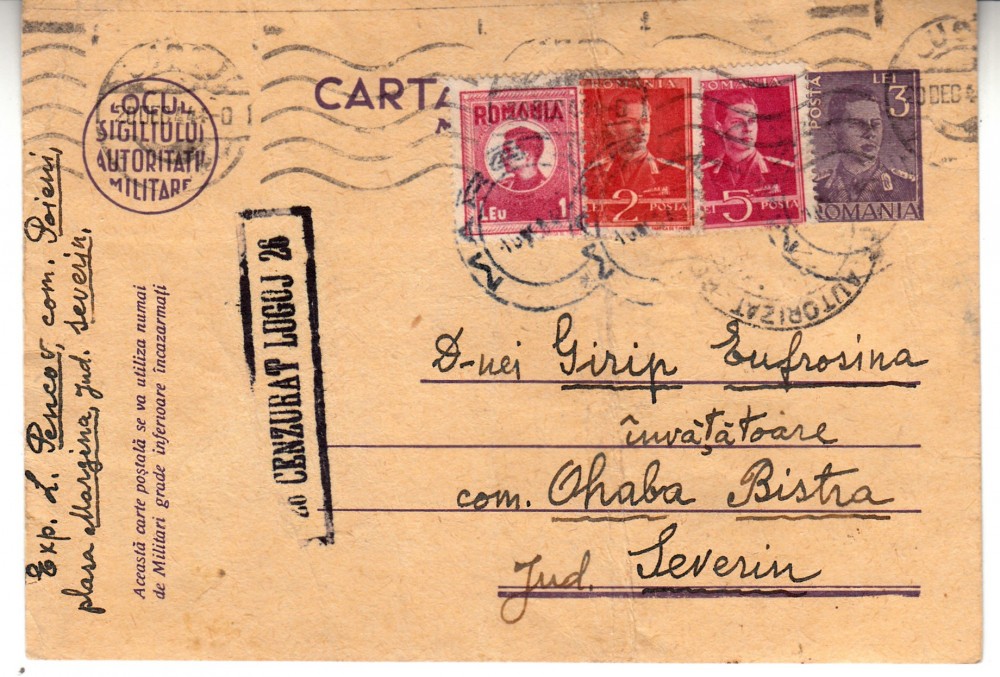 Exp. L. Pencov, com. Poieni,
plasa Margina, Jud. Severin.
Această carte poștală se va utiliza numai
de Militari grade inferioare încazarmați
LOCUL
SIGILIULUI
AUTORITATII
MILITARE
CENZURAT LUGOJ 26
CARTA
ROMANIA
LEU 1
ROMANIA
LEI 2 POSTA
ROMANIA
LEI 5 POSTA
POSTA
LEI 3
ROMANIA
DEC 4
AUTORIZAT
D-nei Girip Eufrosina
învățătoare
com. Ohaba Bistra
Jud. Severin